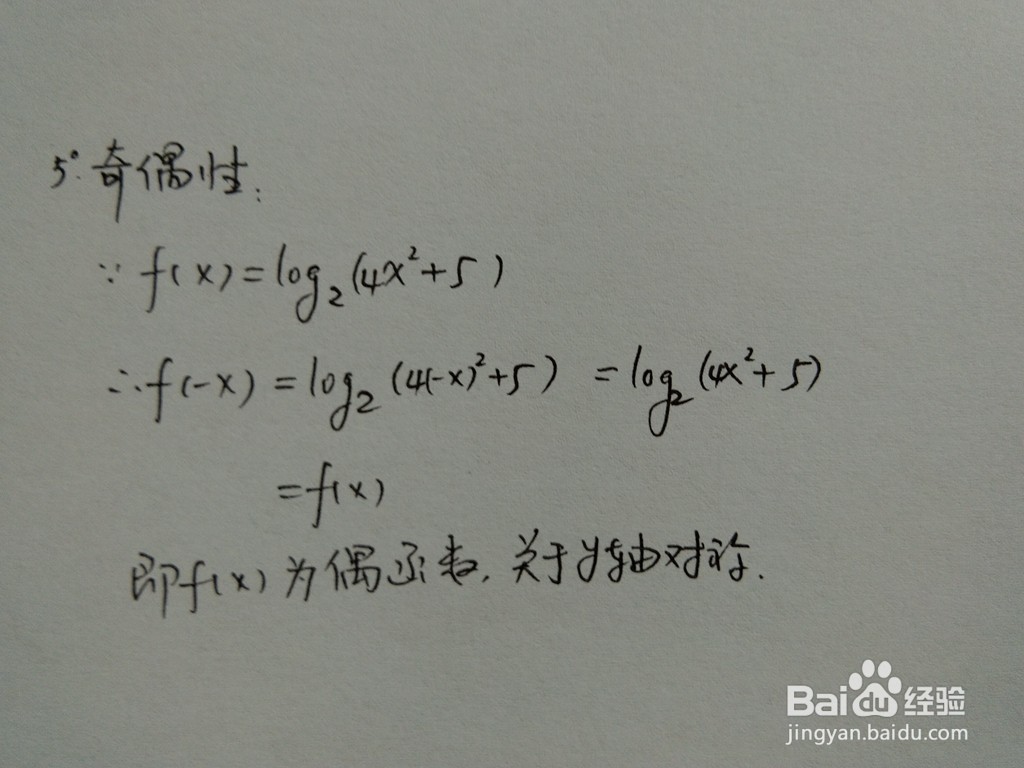 5°.奇偶性:
∵ f(x)=log₂(4x²+5)
∴f(-x)=log₂(4(-x)²+5) =log₂(4x²+5)
=f(x)
即f(x)为偶函数,关于y轴对称.
Baidu经验
jingyan.baidu.com